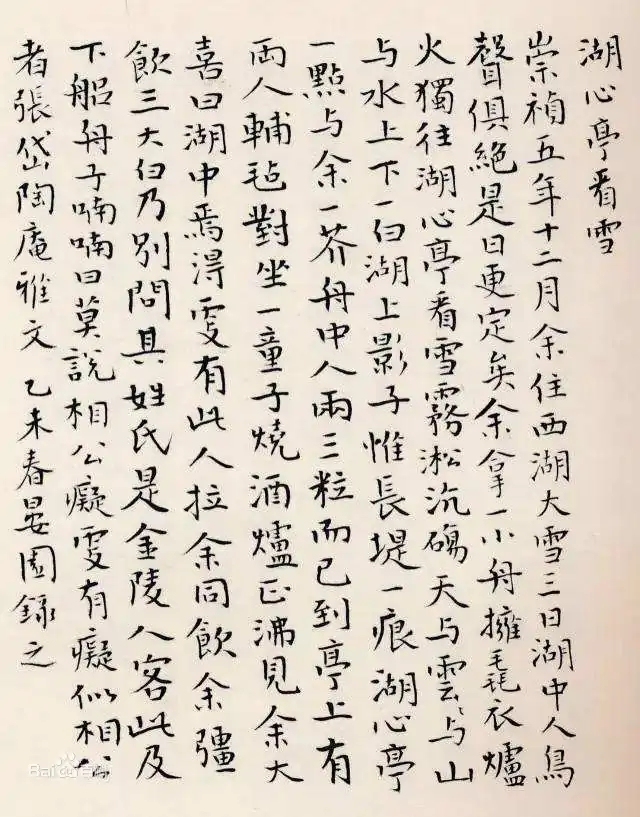 湖心亭看雪
崇禎五年十二月余住西湖大雪三日湖中人鳥
聲俱絕是日更定矣余拿一小舟擁毳衣爐
火獨往湖心亭看雪霧淞沆碭天与雲〻与山
与水上下一白湖上影子惟長堤一痕湖心亭
一點与余一芥舟中人兩三粒而已到亭上有
兩人輔毡對坐一童子燒酒爐正沸見余大
喜曰湖中焉得更有此人拉余同飲余彊
飲三大白乃別問其姓氏是金陵人客此及
下船舟子喃喃曰莫說相公癡更有癡似相公
者張岱陶庵雅文 乙未春晏園錄之
Bai百科